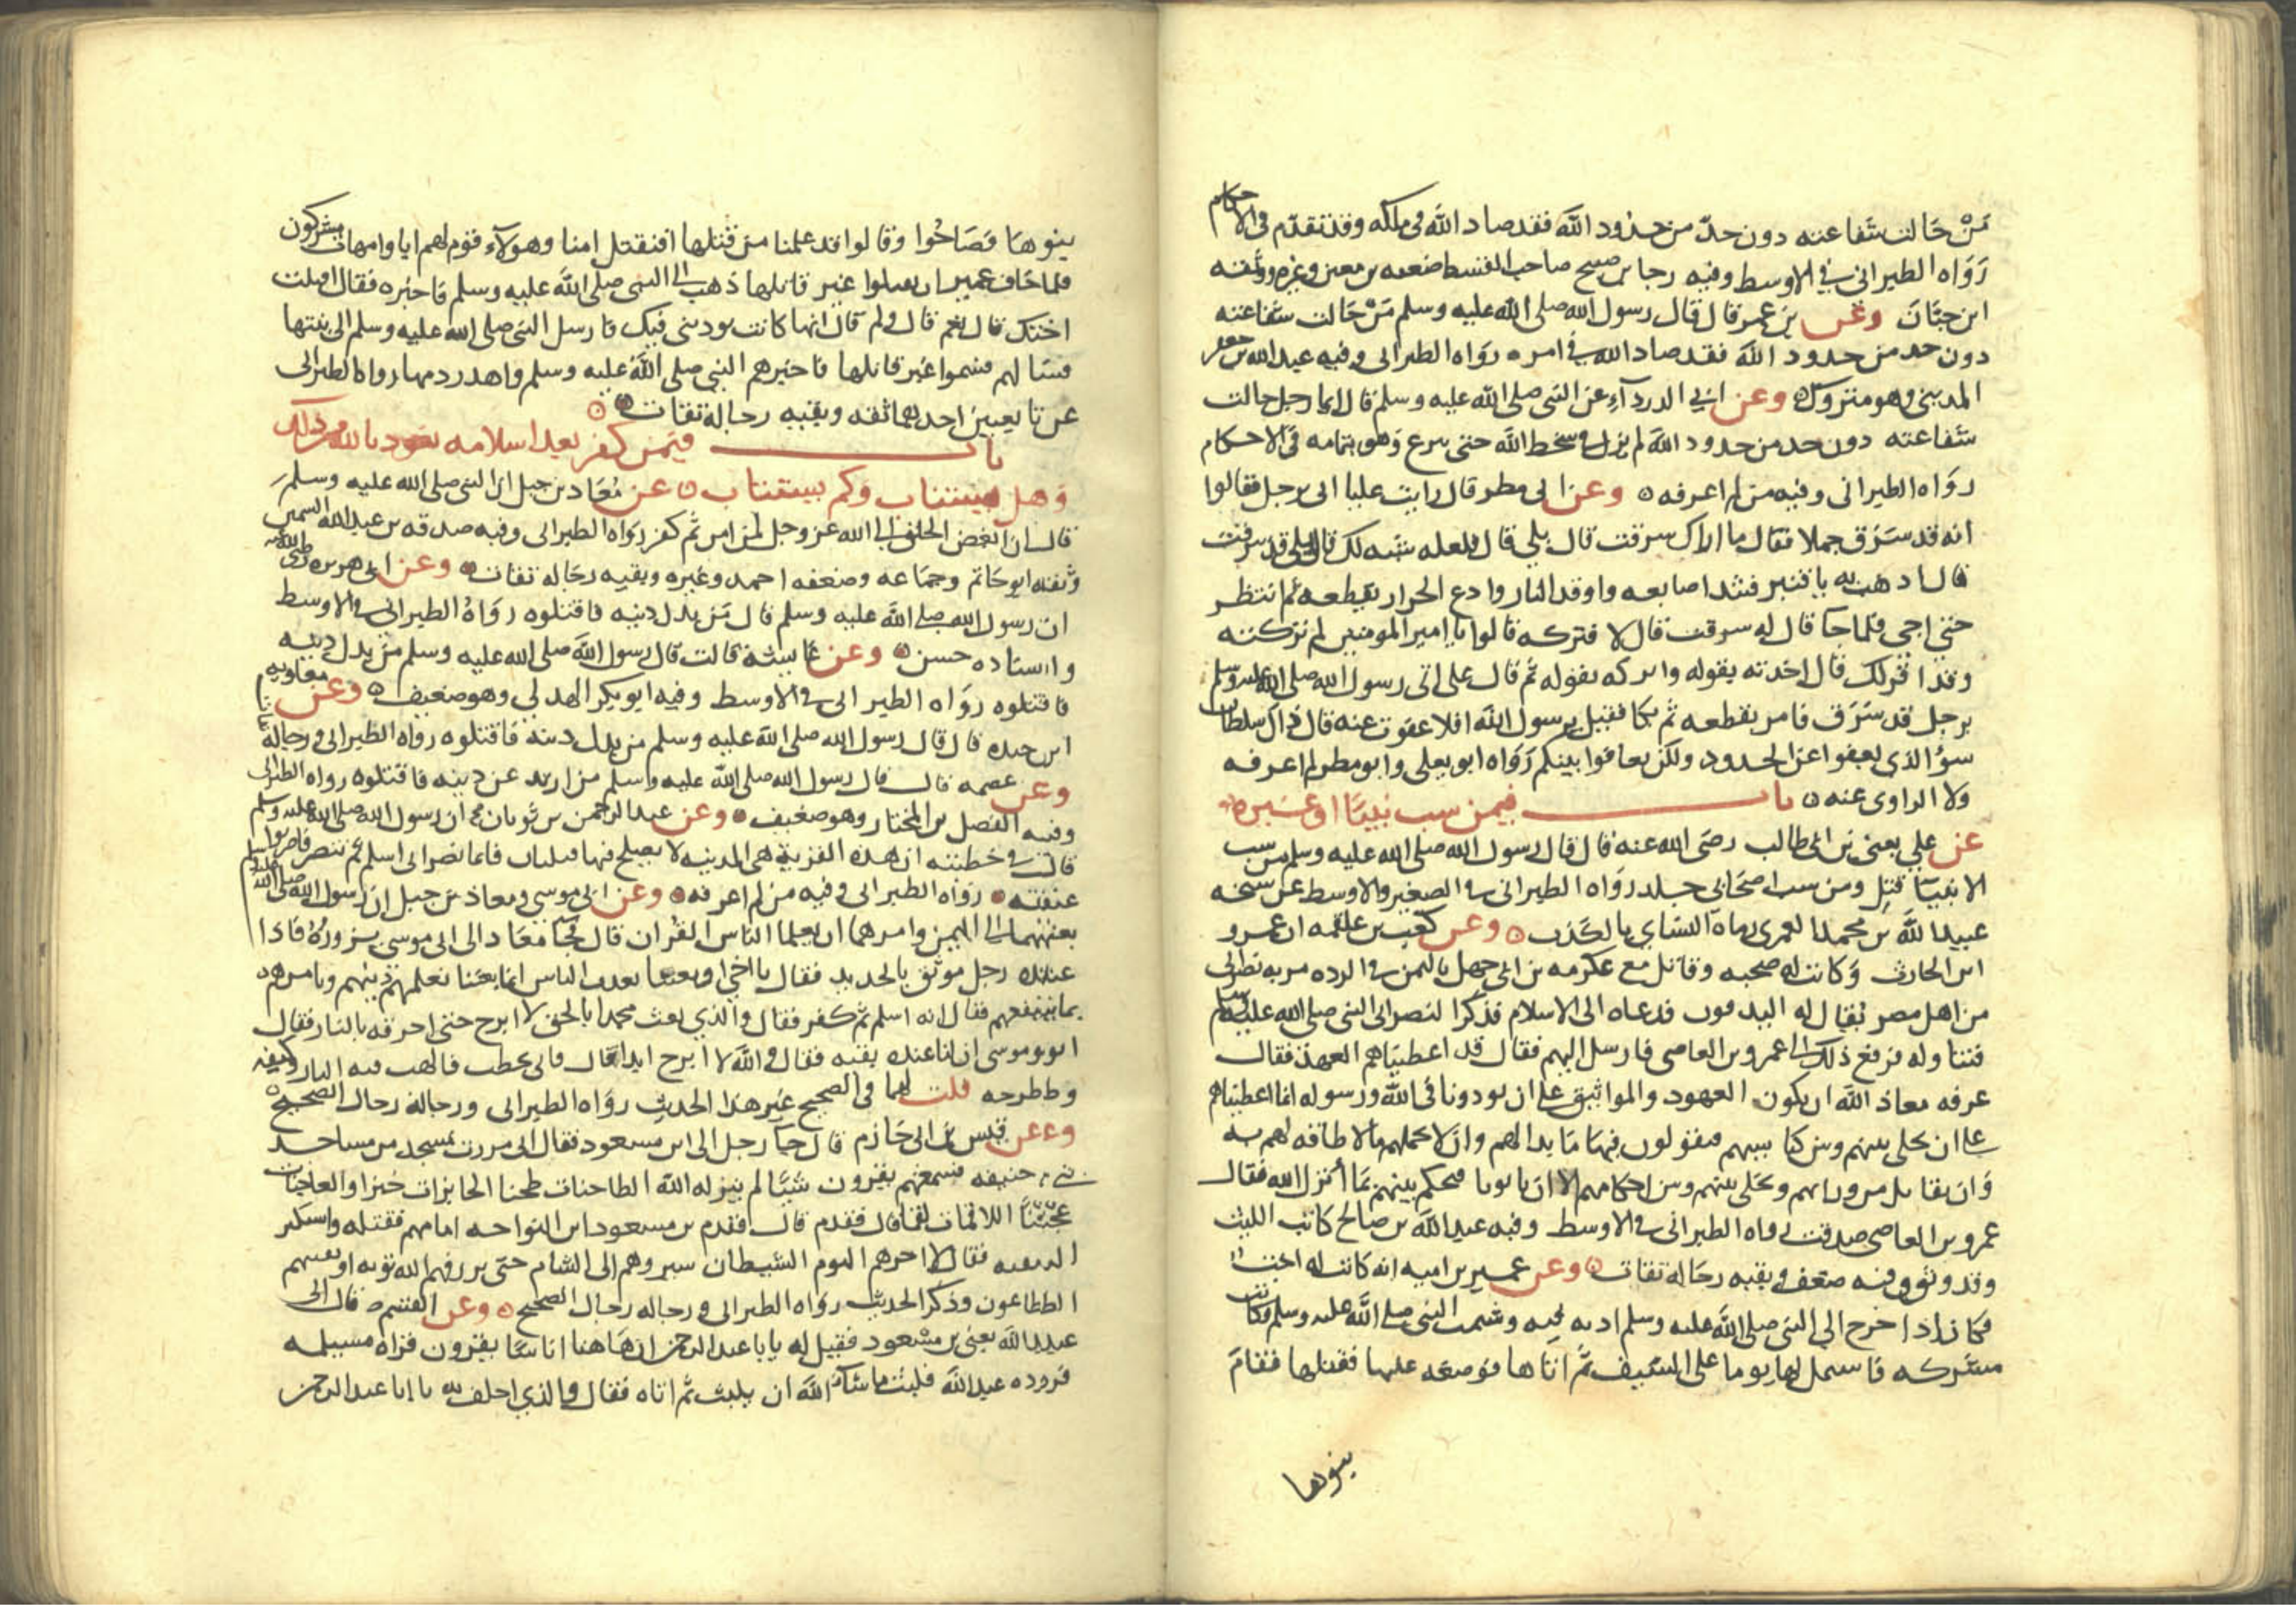 مَنْ حَالت شفاعته دون حدّ من حدُود الله فقد صاد الله فى ملكه وقد تقدّم فى الاحكام
رَوَاه الطبرانى فى الاوسط وفيه رجا بن صبيح صاحب السقط ضعفه بن معين وغيره ووثقه
ابن حبَّانَ وعن بن عمر قال قال رسول الله صلى الله عليه وسلم مَنْ حَالت شفاعته
دون حد من حدود الله فقد صاد الله فى امره رواه الطبرانى وفيه عبد الله بن جعفر
المدينى وهو متروك وعن ابى الدرداء عن النبى صلى الله عليه وسلم قال ايما رجل حالت
شفاعته دون حد من حدود الله لم يزل فى سخط الله حتى ينزع وهو بتمامه فى الاحكام
رواه الطبرانى وفيه من لم اعرفه وعن ابى مطر قال رايت عليا اتى برجل فقالوا
انه قد سَرَق جملا فقال ما اراك سرقت قال بلى قال فلعله شبه لك قال بلى قد سرقت
قال اذهب به يا قنبر فشد اصابعه واوقد النار وادع الجزار يقطعه ثم انتظر
حتى اجى فلما جا قال له سرقت قال لا فتركه قالوا يا امير المومنين لم تركته
وقد اقر لك قال اخذته بقوله واتركه بقوله ثم قال على اتى رسول الله صلى الله عليه وسلم
برجل قد سَرَق فامر بقطعه ثم بكا فقيل يرسول الله افلا عفوت عنه قال ذاك سلطان
سوُ الذى يعفوا عن الحدود ولكن تعافوا بينكم رَوَاه ابو يعلى وابو مطر لم اعرفه
ولا الراوى عنه باب فيمن سب نبيًا او غيره
عن علي يعنى بن ابى طالب رضى الله عنه قال قال رسول الله صلى الله عليه وسلم من سب
الانبياَ قتِل ومن سب اصحَابى جلد رواه الطبرانى فى الصغير والاوسط عن شيخه
عبيد الله بن محمد العمرى رماه النساى بالكذب وعن كعب بن علقمه ان عمرو
ابن الحارث وَكانت له صحبه وقاتل مع عكرمه بن ابى جهل باليمن فى الرده مر به نصرانى
من اهل مصر يُقال له البندقون فدعاه الى الاسلام فذكر النصرانى النبى صلى الله عليه وسلم
فتناوله فرفع ذلك الى عمرو بن العاصى فارسل اليهم فقال قد اعطيناهم العهد فقال
عرفه معاذ الله ان يكون العهود والمواثيق على ان يوذونا فى الله ورسوله انما اعطيناهم
على ان نخلى بينهم وبين كنايسهم فيقولون فيها ما بدا لهم وان لا نحملهم مالا طاقه لهم به
وَان نقاتل من ورايهم ونخلى بينهم وبين احكامهم الا ان ياتونا فنحكم بينهم بمَا أنزل الله فقال
عمرو بن العاصى صدقت رواه الطبرانى فى الاوسط وفيه عبد الله بن صالح كاتب الليث
وقد وثق وفيه ضعف وبقيه رجَاله ثقات وعن عمير بن اميه انه كانت له اخت
فكان اذا خرج الى النبى صلى الله عليه وسلم اذته فيه وشتمت النبى صلى الله عليه وسلم وكانت
مشركه فاشتمل لها يوما على السَيف ثم اتاها فوضعه عليها فقتلها فقامَ
بنوها
بنوهَا فصَاحُوا وقالوا قد علمنا من قتلها افنقتل امنا وهولآء قوم لهم ابا وامهات مشركون
فلما خاف عمير ان يقتلوا غير قاتلها ذهب الى النبى صلى الله عليه وسلم فاخبره فقال اقتلت
اختك قال نعم قال ولم قال انها كانت توذينى فيك فارسل النبى صلى الله عليه وسلم الى بنيها
فسَالهم فسموا غير قاتلها فاخبرهم النبى صلى الله عليه وسلم واهدر دمها رواه الطبرانى
عن تابعيين احدهما ثقه وبقيه رجاله ثقات
باب فيمن كفر بعد اسلامه نعوذ بالله من ذلك
وَهل يستتاب وكم يستتاب عن مُعَاذ بن جبل ان النبى صلى الله عليه وسلم
قال ان ابغض الخلق الى الله عز وجل لمن امن ثم كفر رواه الطبرانى وفيه صدقه بن عبد الله السمين
وثقه ابو حَاتم وجمَاعه وضعفه احمد وغيره وبقيه رجاله ثقات وعن ابى هريره رضى الله عنه
ان رسول الله صلى الله عليه وسلم قال مَن بدل دينه فاقتلوه روَاهُ الطبرانى فى الاوسط
واسناده حسن وعن عَايشة قالت قال رسول الله صلى الله عليه وسلم من بدل دينه
فاقتلوه روَاه الطبرانى فى الاوسط وفيه ابو بكر الهذلى وهو ضعيف وعن معاويه
ابن حيده قال قال رسول الله صلى الله عليه وسلم من بدل دينه فاقتلوه رواه الطبرانى ورجاله
وعن عصمه قال قال رسول الله صلى الله عليه وسلم من ارتد عن دينه فاقتلوه رواه الطبرانى
وفيه الفضل بن المختار وهو ضعيف وعن عبد الرحمن بن ثوبان ان رسول الله صلى الله عليه وسلم
قال فى خطبته ان هذه القرية هى المدينه لا يصلح فيها قبلتان فايما نصرانى اسلم ثم تنصر فاضربوا
عنقه رَواه الطبرانى وفيه من لم اعرفه وعن ابى موسى ومعاذ بن جبل ان رسول الله صلى الله عليه وسلم
بعثهما الى اليمن وامرهما ان يعلما الناس القرْان قال فجا معَاذ الى ابى موسى يزورهُ فاذا
عنده رجل موثق بالحديد فقال يا اخى او بعثنا نعذب الناس انما بعثنا نعلمهم دينهم ونامرهم
بما ينفعهم فقال انه اسلم ثم كفر فقال والذي بعث محمدا بالحق لا ابرح حتى احرقه بالنار فقال
ابو موسى ان لنا عنده بقيه فقال والله لا ابرح ابدا قال فاتى بحطب فالهب فيه النار وكتفه
وطرحه قلت لهما فى الصحيح غير هَذا الحَديث روَاه الطبرانى ورجاله رجال الصحيح
وعن قيس بن ابى حَازم قال جآ رجل الى ابن مسعود فقال انى مررت بمسجد من مساجد
بنى حنيفه فسمعتهم يقرون شَيًا لم ينزله الله الطاحنات طحنا الخابزات خبزا والعاجنات
عجنًا اللاقمات لقما قال فقدم قال فقدم بن مسعود ابن النواحه امامهم فقتله واستكثر
البقيه فقال لا اجزرهم اليوم الشيطان سيروهم الى الشام حتى يرزقهم الله توبه او يفنيهم
الطاعون وذكر الحديث رواه الطبرانى ورجاله رجال الصحيح وعن القسم قال اتى
عبد الله يعنى بن مسعود فقيل له يابا عبد الرحمن ان هَاهنا اناسًا يقرون قراه مسيلمه
فرده عبد الله فلبث ما شآ الله ان يلبث ثم اتاه فقال والذي احلف به يا ابا عبد الرحمن